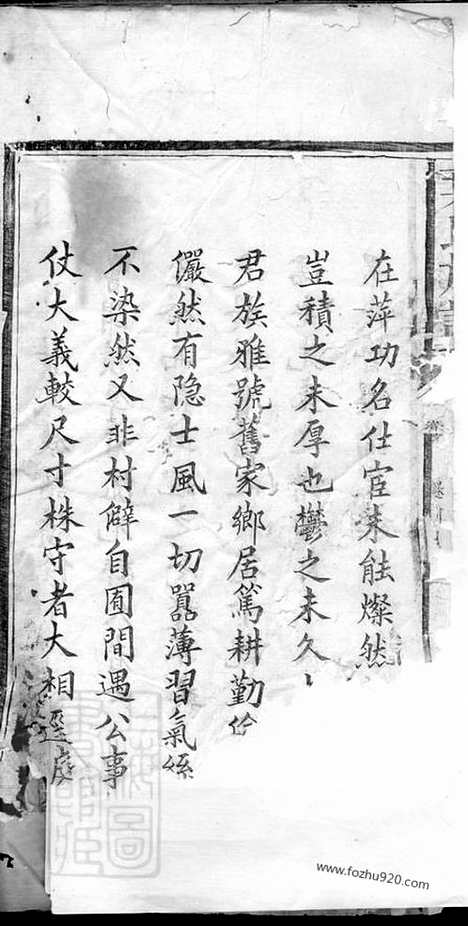 在萍功名仕宦未能燦然
豈積之未厚也鬱之未久
君族雅號舊家鄉居篤耕勤
儼然有隐士風一切囂薄習氣絲
不染然又非村僻自囿間遇公事
仗大義較尺寸株守者大相逕庭
www.fozhu920.com